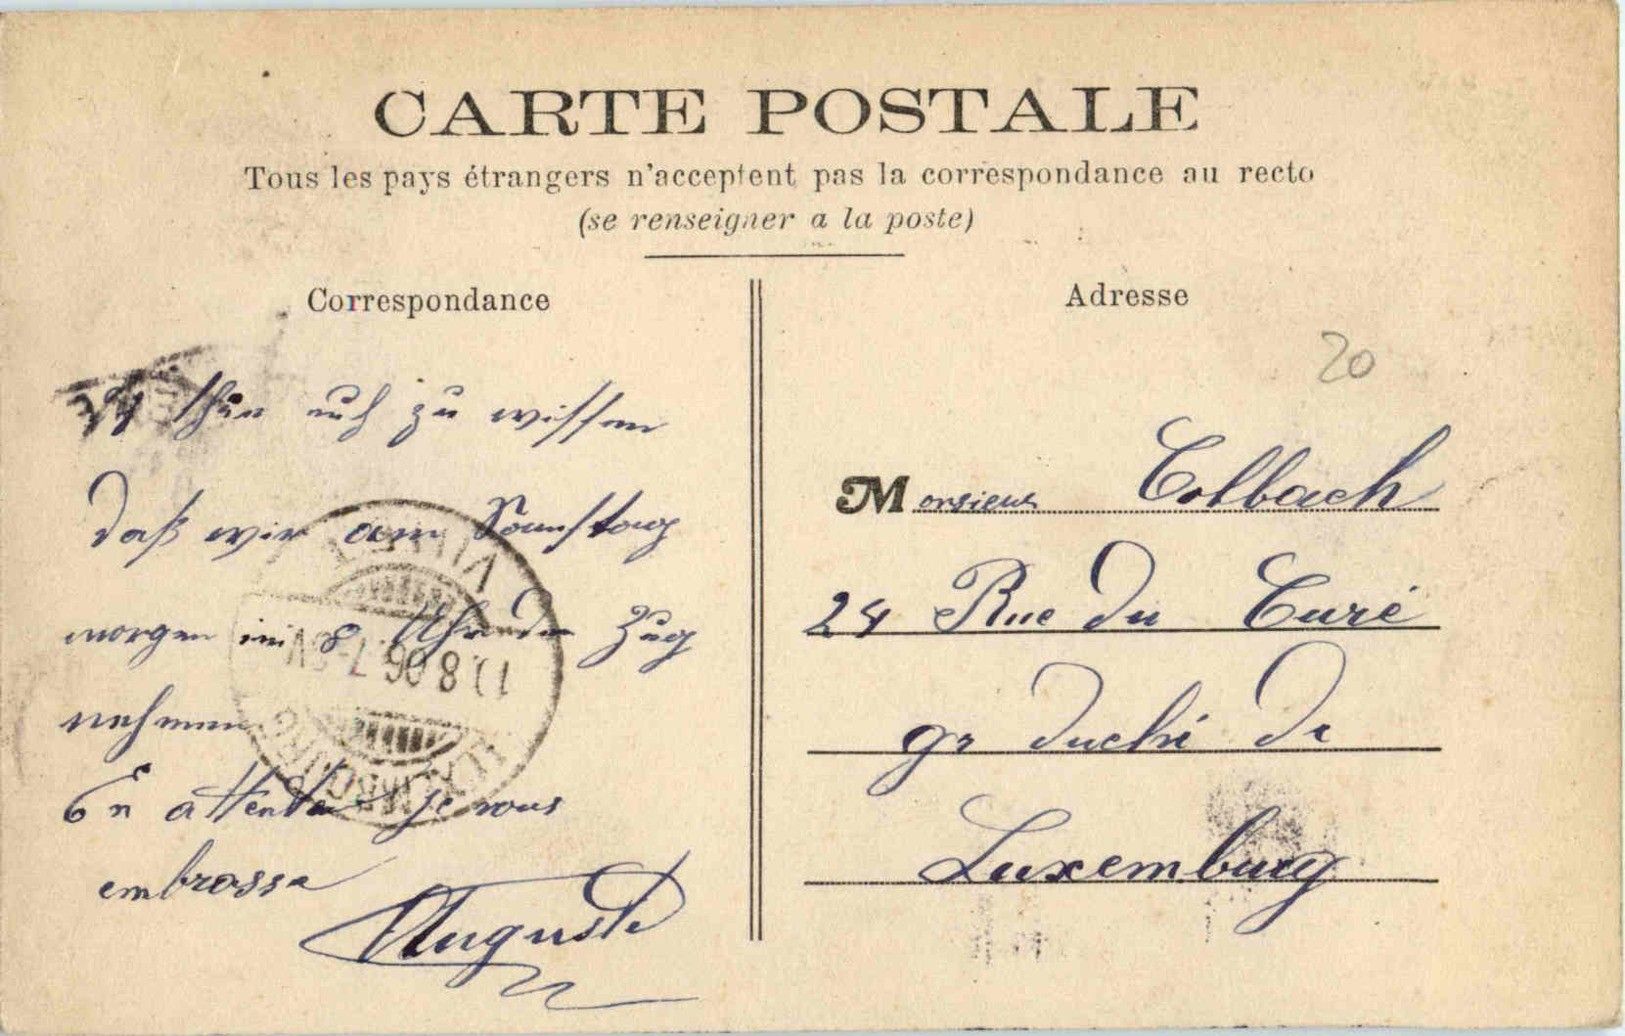 CARTE POSTALE
Tous les pays étrangers n'acceptent pas la correspondance au recto
(se renseigner a la poste)
Correspondance
thun uch zu wissen
daß wir am Sonnstag
morgen im 8 Uhr den Zug
nehmen
En attendant je vous
embrasse
Auguste
LUXEMBOURG
VILLE
11.8.06.7-8V
Adresse
20
Monsieur Colbach
24 Rue du Curé
gr duché de
Luxemburg